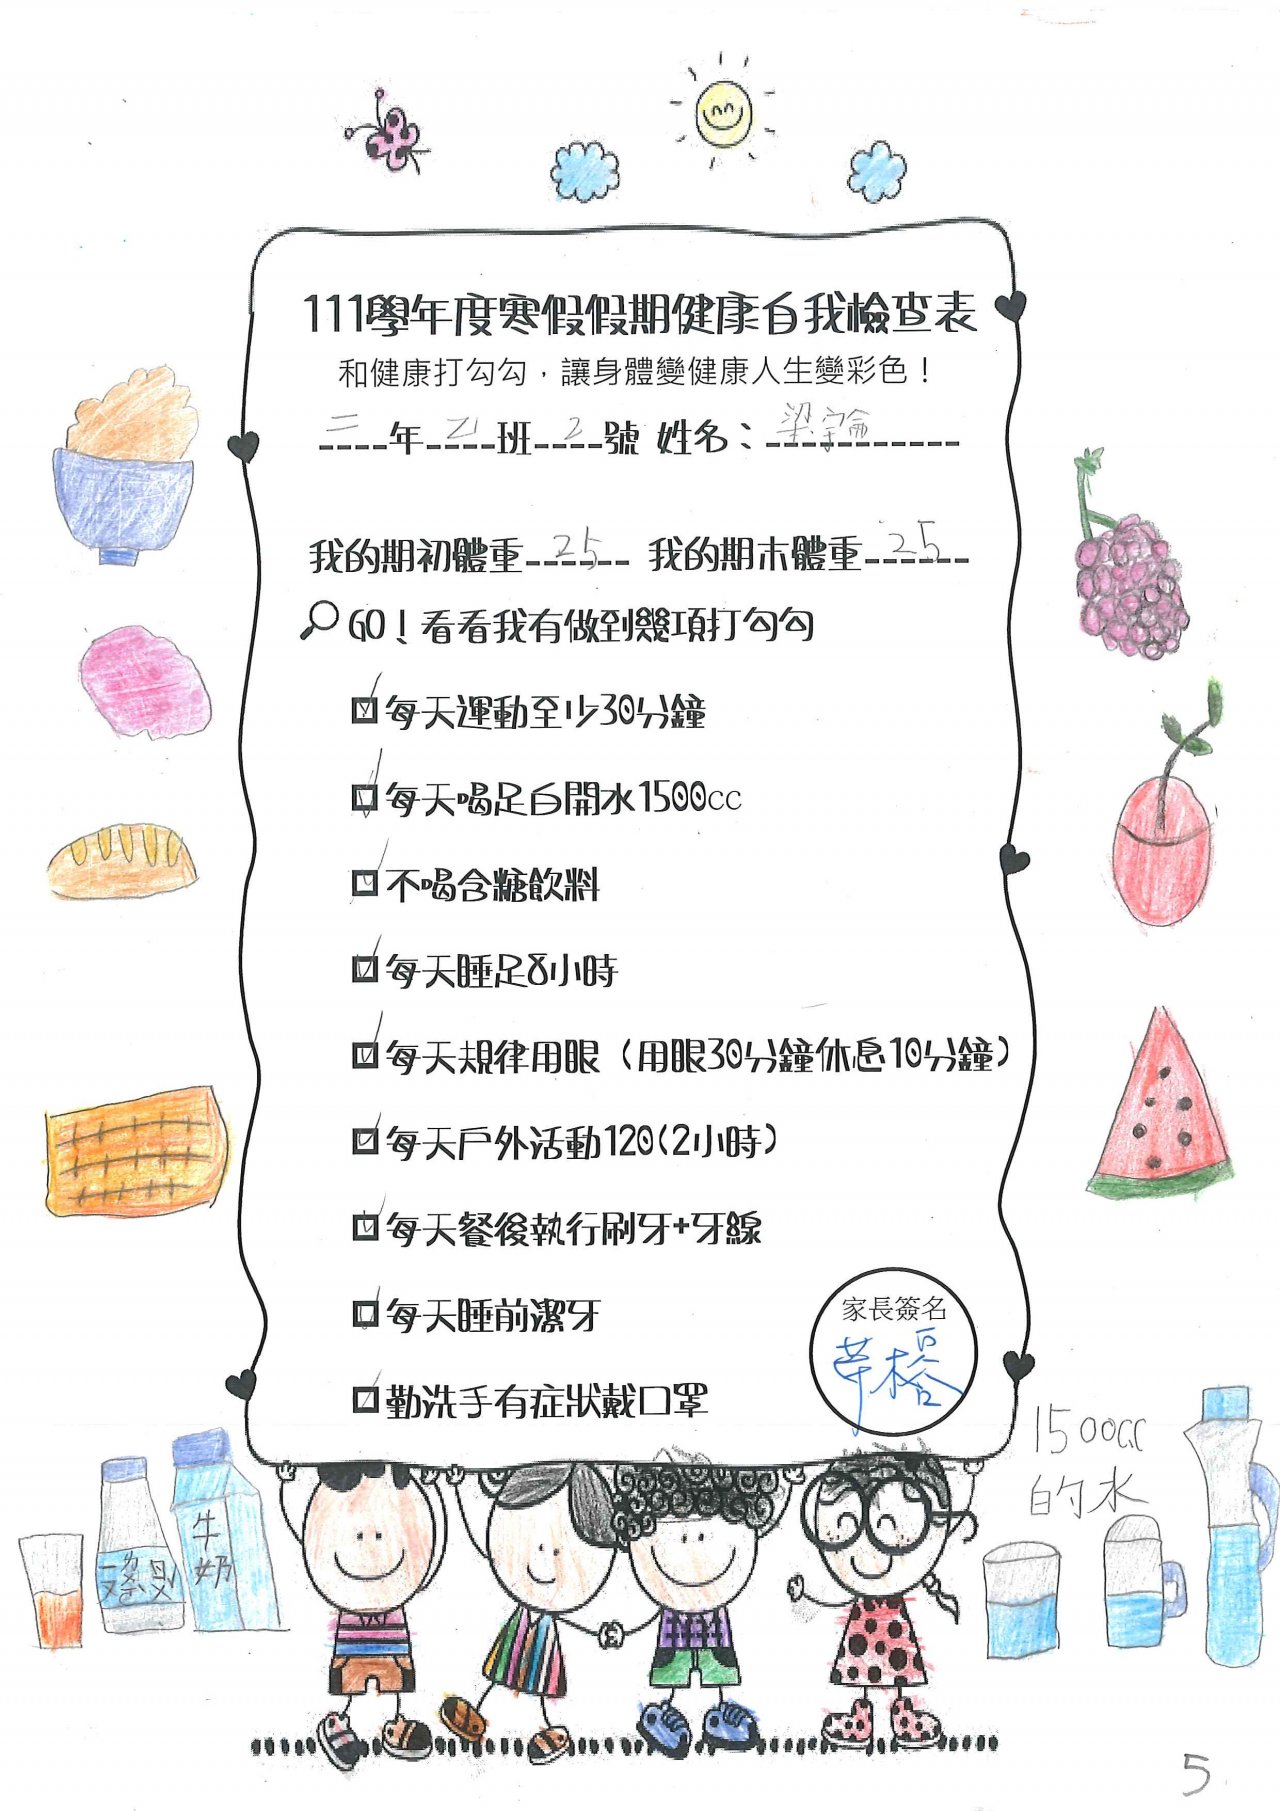 111學年度寒假假期健康自我檢查表
和健康打勾勾，讓身體變健康人生變彩色！
二年乙班2號 姓名：梁宇綸
我的期初體重25 我的期末體重25
GO！看看我有做到幾項打勾勾
☑每天運動至少30分鐘
☑每天喝足白開水1500cc
☑不喝含糖飲料
☑每天睡足8小時
☑每天規律用眼（用眼30分鐘休息10分鐘）
☑每天戶外活動120(2小時)
☑每天餐後執行刷牙+牙線
☑每天睡前潔牙
☑勤洗手有症狀戴口罩
家長簽名
1500cc
的水
牛
奶
5